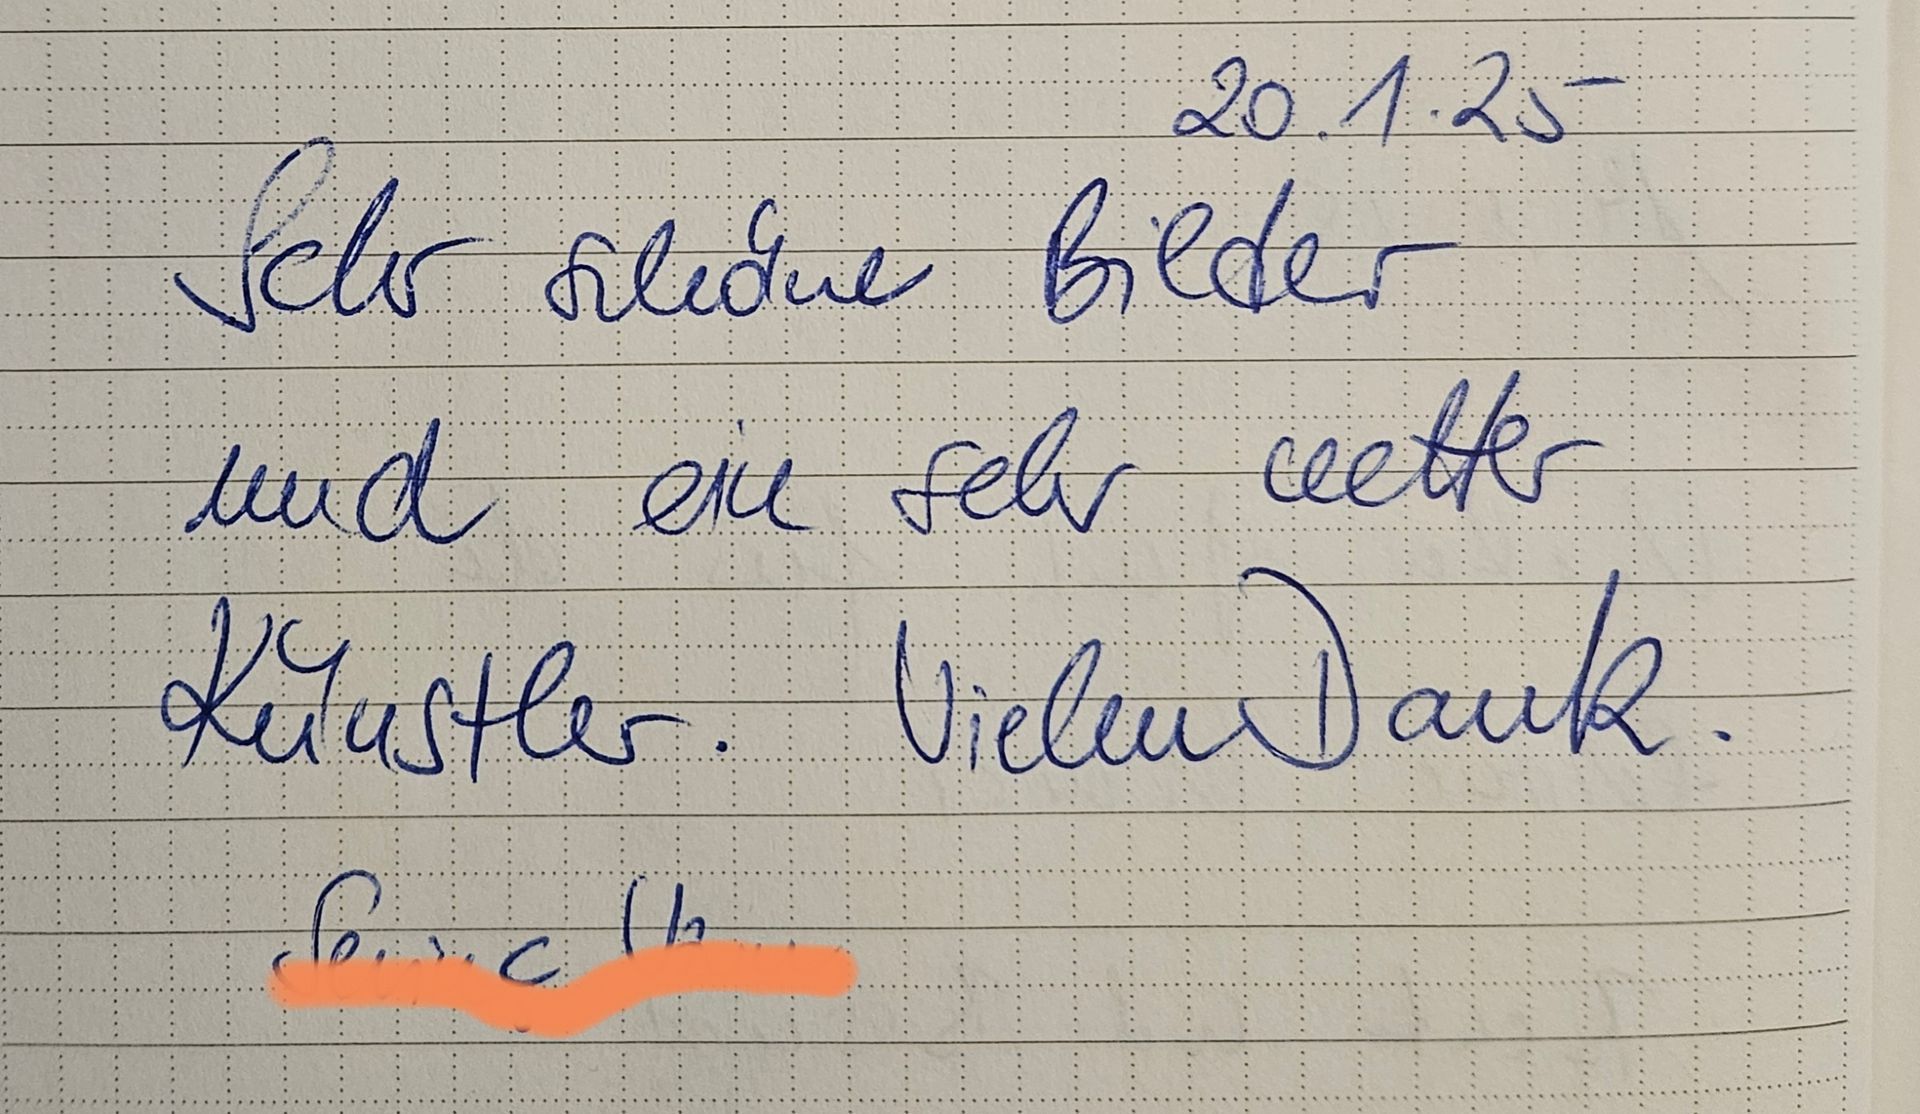 20.1.25
Sehr schöne Bilder
und ein sehr netter
Künstler. Vielen Dank.